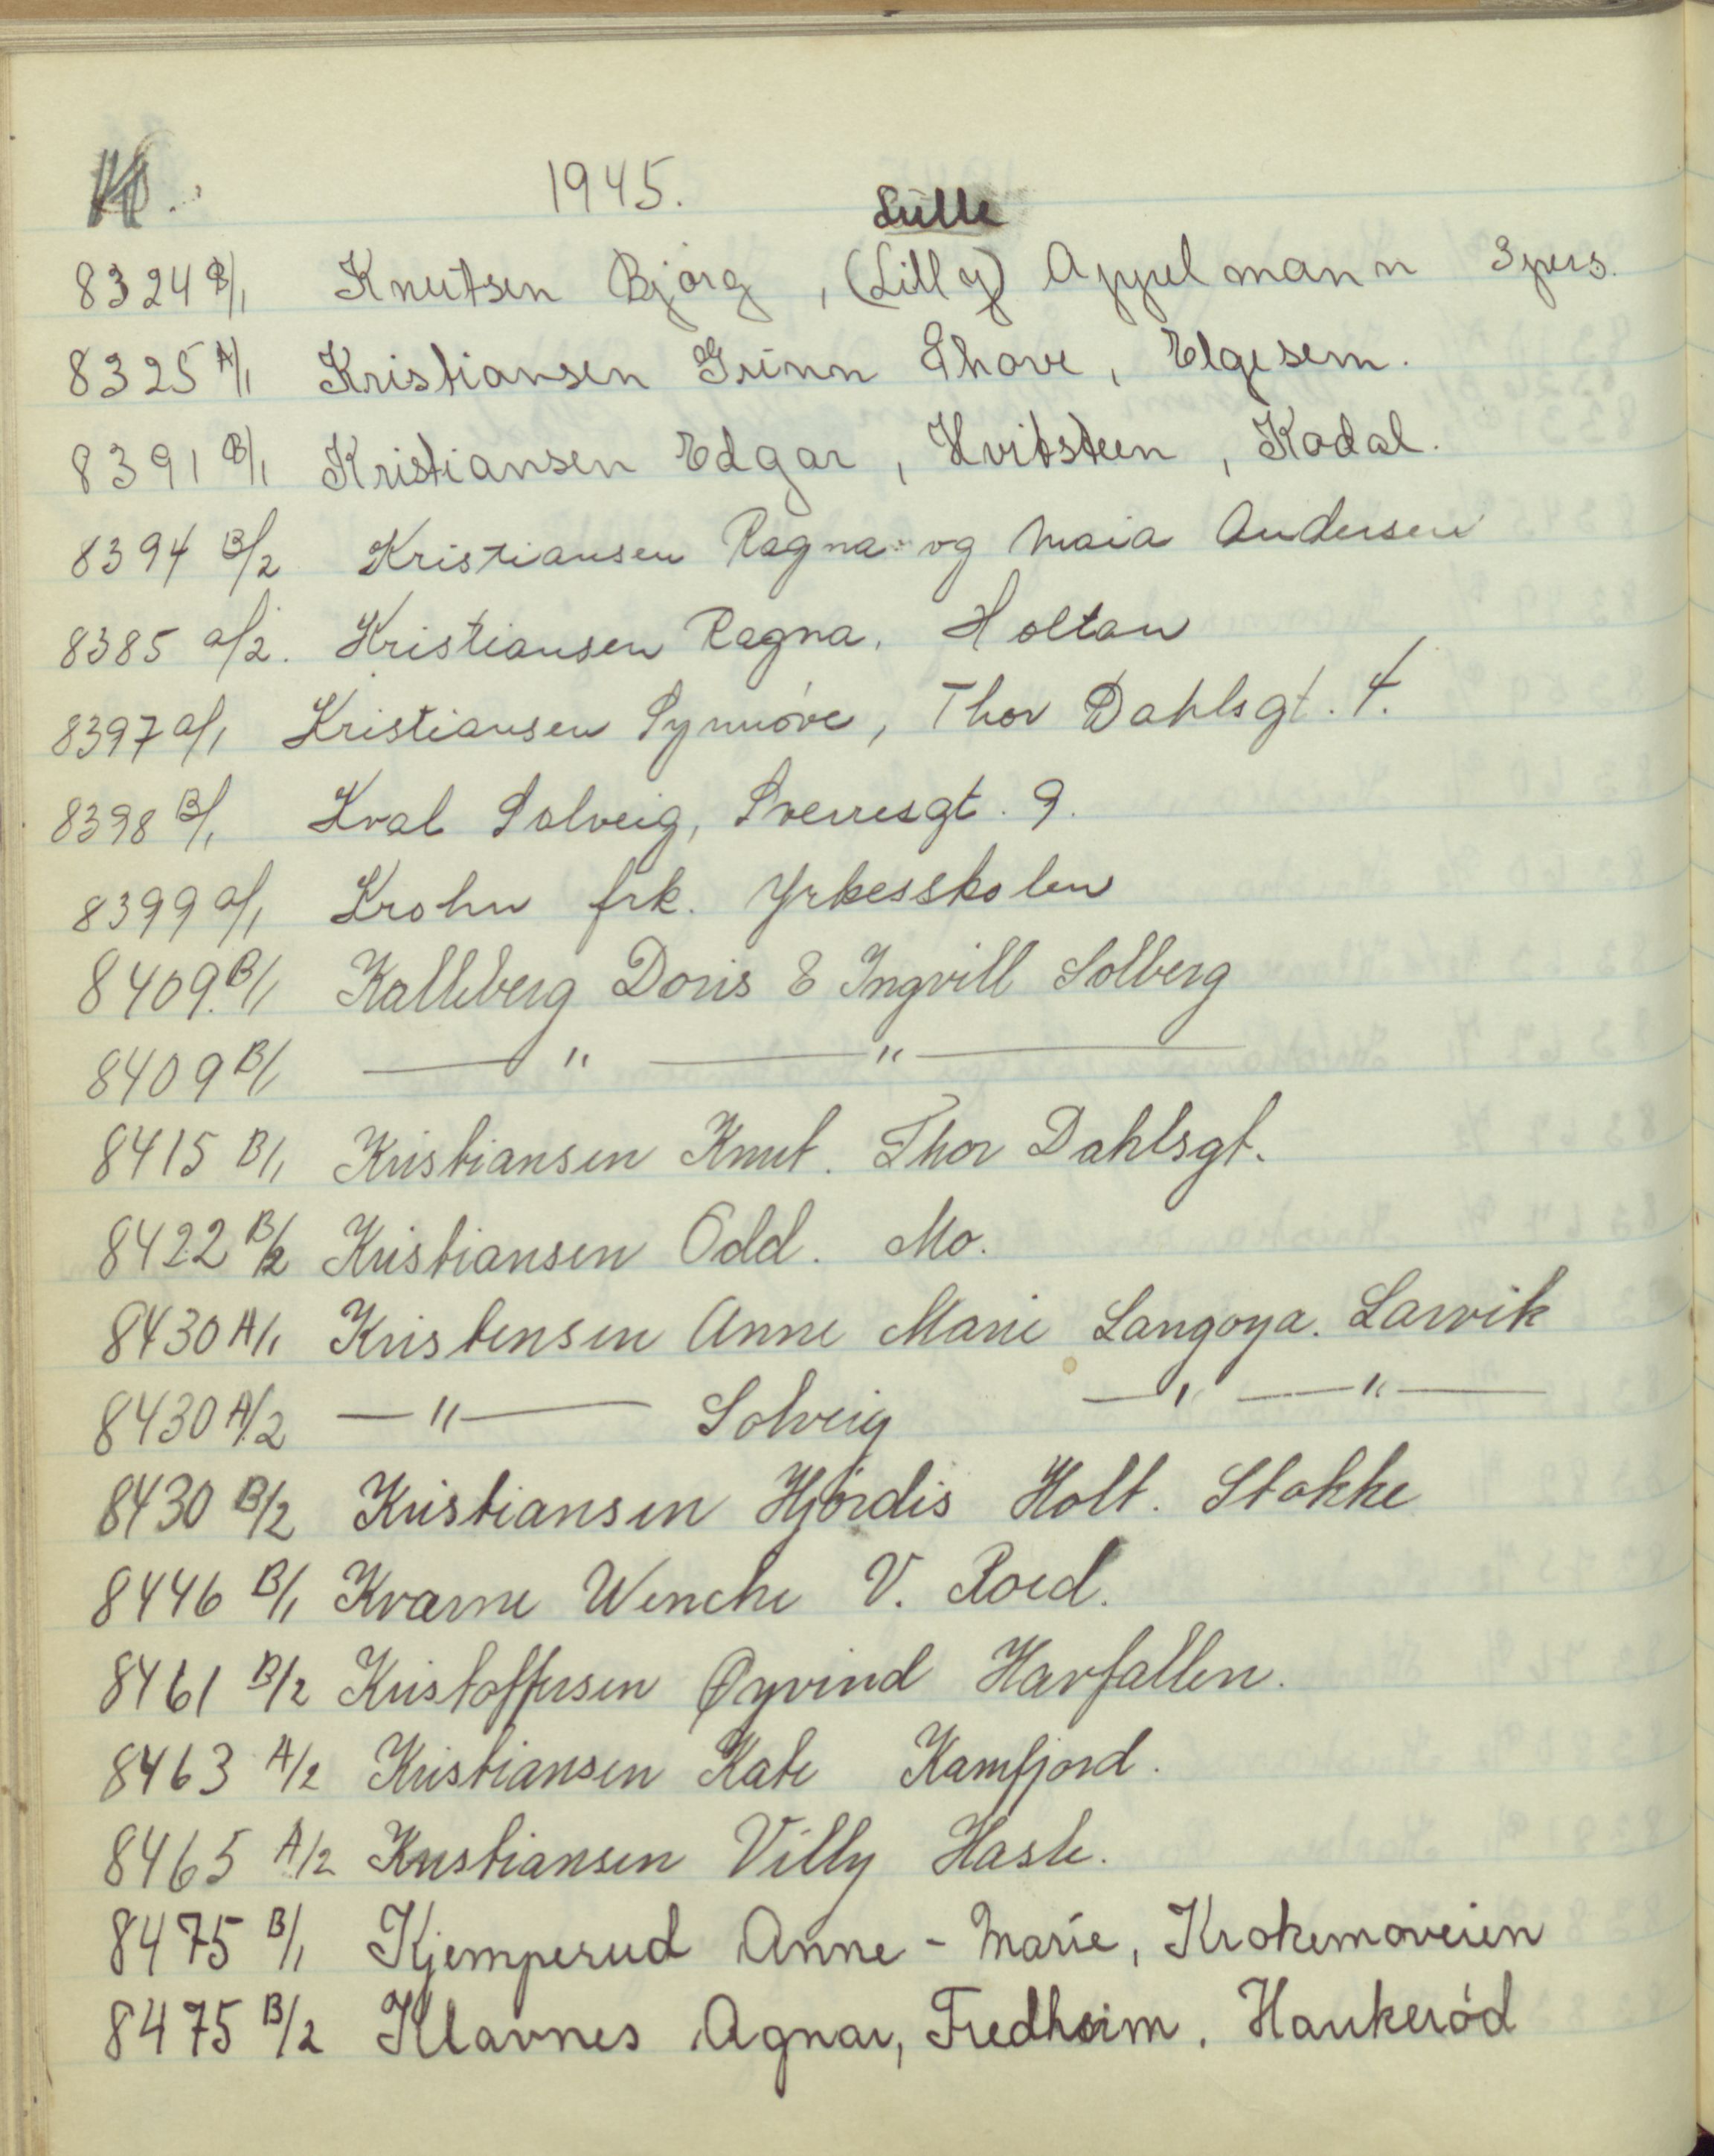 K. 1945.
Lülle
8324 B/1 Knutsen Bjørg, (Lilly) Appelmann 3 pers.
8325 A/1 Kristiansen Grinn Thove, Elgesem.
8391 B/1 Kristiansen Edgar, Hvitsteen, Kodal.
8394 B/2 Kristiansen Ragna og Maia Andersen
8385 a/2. Kristiansen Ragna, Holtan
8397 a/1 Kristiansen Synnøve, Thor Dahlsgt. 4.
8398 B/1 Kval Solveig, Sverresgt. 9.
8399 a/1 Krohn frk. Yrkesskolen
8409. B/1 Kalleberg Doris & Ingvill Solberg
8409 B/1 — " — " —
8415 B/1 Kristiansen Knut. Thor Dahlsgt.
8422 B/2 Kristiansen Odd. Mo.
8430 A/1 Kristensen Anne Marie Langøya. Larvik
8430 A/2 — " — Solveig — " — " —
8430 B/2 Kristiansen Hjørdis Holt. Stokke
8446 B/1 Kvarne Wenche V. Roed.
8461 B/2 Kristoffersen Øyvind Havfallen.
8463 A/2 Kristiansen Kate Kamfjord.
8465 A/2 Kristiansen Villy Hasle.
8475 B/1 Kjemperud Anne - Marie, Krokemoveien
8475 B/2 Klavnes Agnar, Fredheim, Haukerød